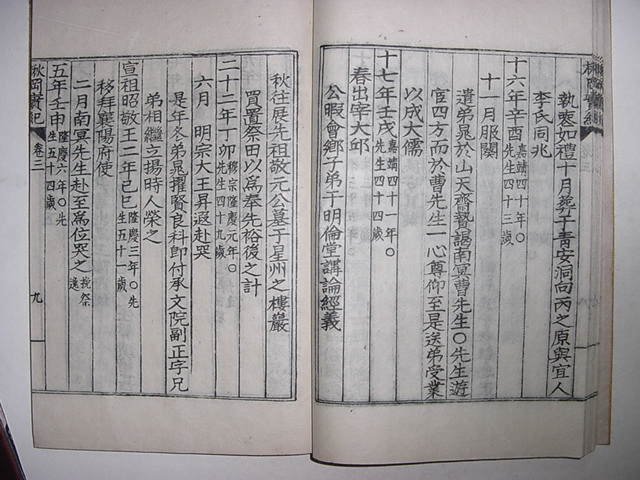 執喪如禮十月葬于靑安洞向丙之原與宜人
李氏同兆
十六年辛酉嘉靖四十年○先生四十三歲
十一月服闋
遣弟晁於山天齋贄謁南冥曺先生○先生遊
官四方而於曺先生一心尊仰至是送弟受業
以成大儒
十七年壬戌嘉靖四十一年○先生四十四歲
春出宰大邱
公暇會鄕子弟于明倫堂講論經義
秋往展先祖敬元公墓于星州之樓巖
買置祭田以爲奉先裕後之計
二十二年丁卯穆宗隆慶元年○先生四十九歲
六月　明宗大王昇遐赴哭
是年冬弟晁擢賢良科卽付承文院副正字兄
弟相繼立揚時人榮之
宣祖昭敬王二年己巳隆慶三年○先生五十一歲
移拜襄陽府使
二月南冥先生赴至爲位哭之
五年壬申隆慶六年○先生五十四歲
實紀 卷二
九